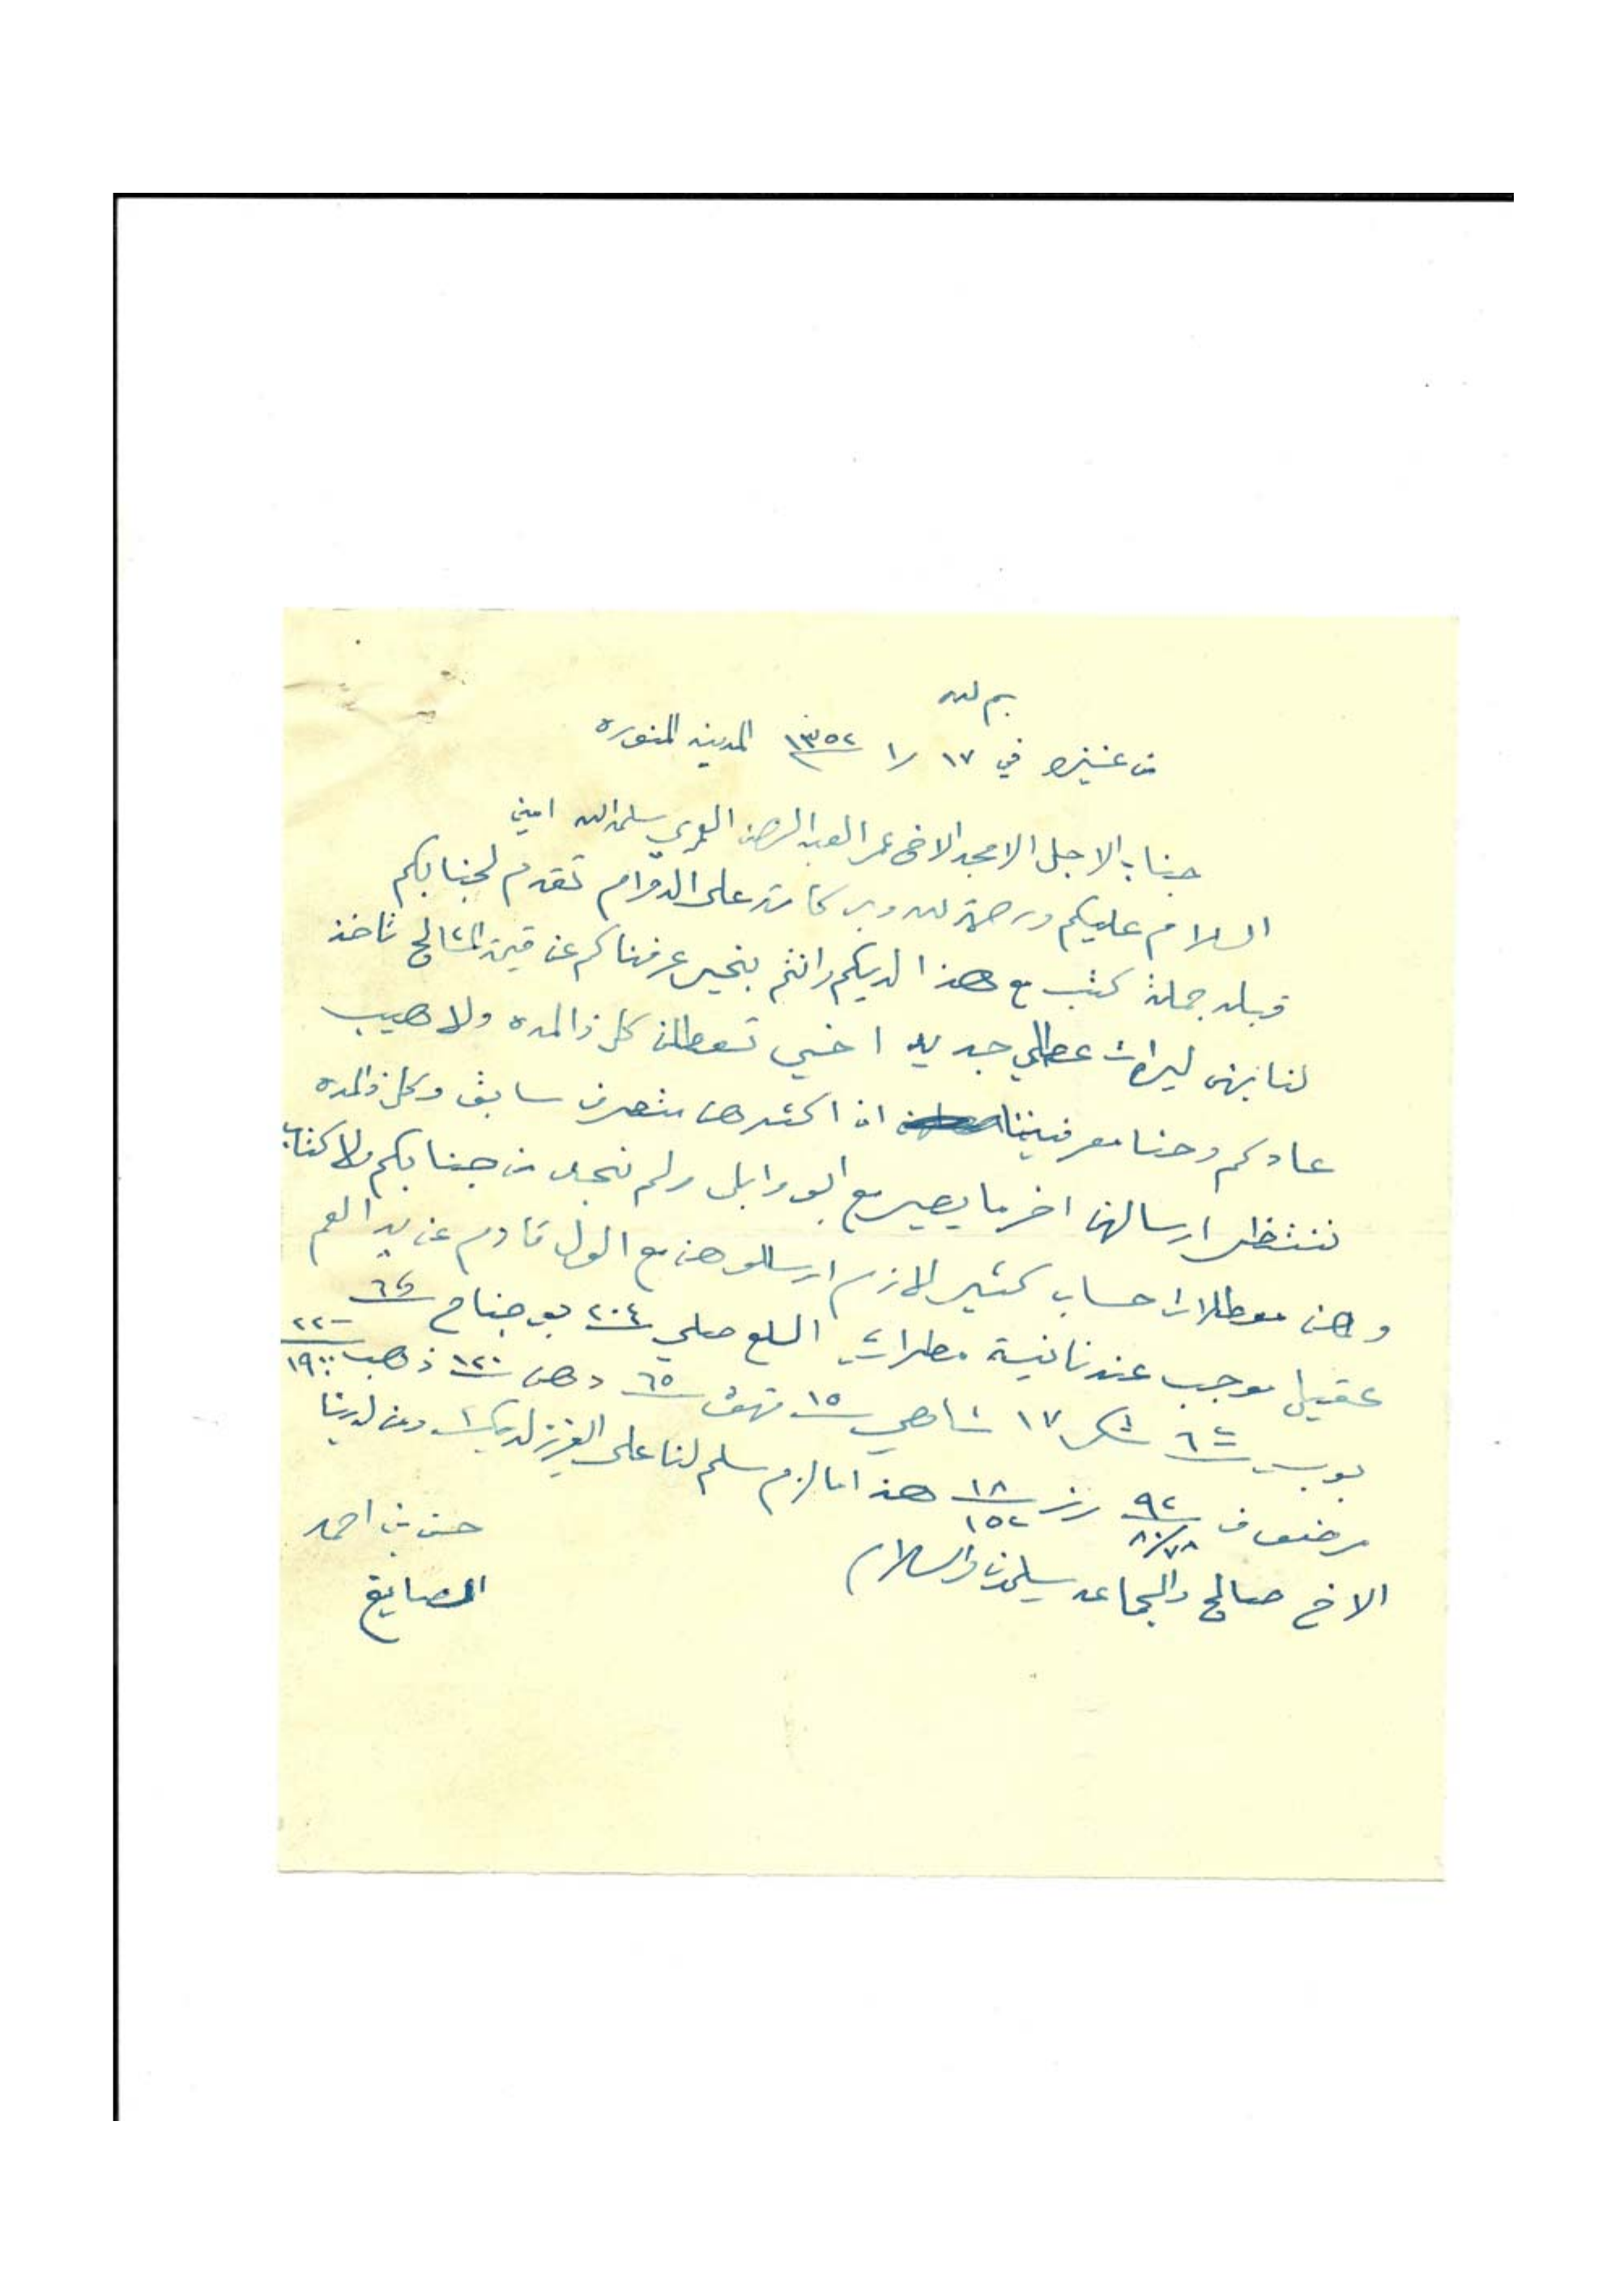 بسم الله
من عنيزه في ١٧ را ١٣٥٢ المدينه المنوره
جناب الاجل الامجد الاخ عمر العبد الرحمن العمري سلمه الله امين
السلام عليكم ورحمة الله وبركاته على الدوام تقدم لجنابكم
قبله جملة كتب مع هذا لديكم وانتم بخير عرفناكم عن قيمة المشالح تاخذ
لنا بهن ليرات عصملي جديد اخي تعطلن كل ذالمده ولا هيب
عادكم وحنا معرفيننا ان اكثرهن متصرف سابق وكل ذالمده
ننتظر ارسالهن اخر ما يصير مع ابو وابل ولم نجد من جنابكم ولا كتاب
وهن معطلات حساب كثير لازم ارسلوهن مع اول قادم عن يد العم
عقيل موجب عندنا نيسة مطرات السلع صلي ٢٠٤ بو جناح ٦٥
بوبسـ ٦٢ شكر ١٧ شاهي ١٥ قهوة ٦٥ دهن ١٢٠ ذهب ٢٢٠ ١٩٠٠
مرضوف ٩٢ ٨٠/٧٨ رز ١٨ ١٥٢ هذا ما لزم سلم لنا على العزيز لديك ومن لدينا
الاخ صالح والجماعه يسلمون والسلام
حسن بن احمد
الصايغ